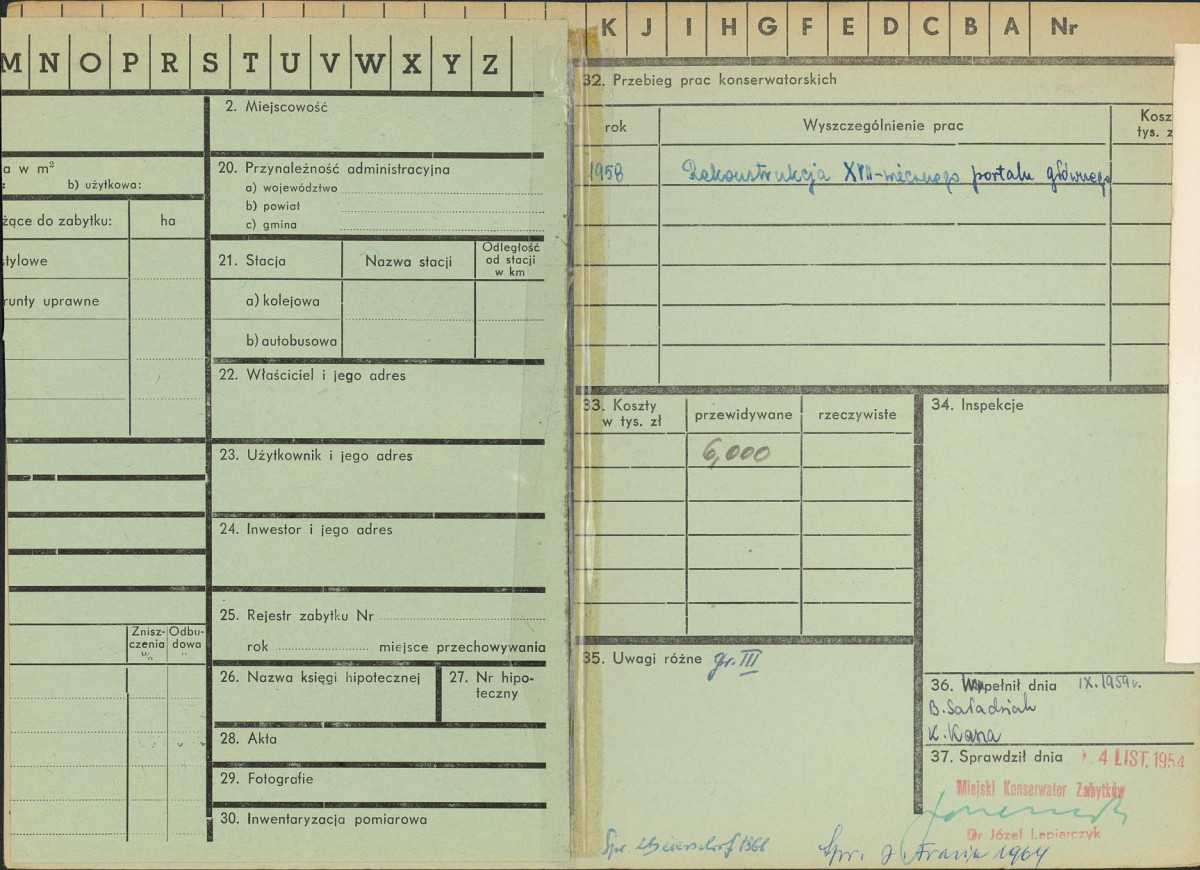 M N O P R S T U V W X Y Z
2. Miejscowość
a w m²
b) użytkowa:
20. Przynależność administracyjna
a) województwo
b) powiat
c) gmina
żące do zabytku:
ha
tylowe
runty uprawne
21. Stacja
Nazwa stacji
Odległość
od stacji
w km
a) kolejowa
b) autobusowa
22. Właściciel i jego adres
23. Użytkownik i jego adres
24. Inwestor i jego adres
25. Rejestr zabytku Nr
rok miejsce przechowywania
Znisz-
czenia
Odbu-
dowa
26. Nazwa księgi hipotecznej
27. Nr hipo-
teczny
28. Akta
29. Fotografie
30. Inwentaryzacja pomiarowa
K J I H G F E D C B A Nr
32. Przebieg prac konserwatorskich
rok
Wyszczególnienie prac
Kosz
tys. z
1958 Rekonstrukcja XVII-wiecznego portalu głównego
33. Koszty
w tys. zł
przewidywane
rzeczywiste
6,000
34. Inspekcje
35. Uwagi różne gr. III
36. Wypełnił dnia IX.1959 r.
B.
K.
37. Sprawdził dnia 4 LIST. 1954
Miejski Konserwator Zabytków
Dr Józef Lepiarczyk
Spr. 1966
Spr. J. 1964